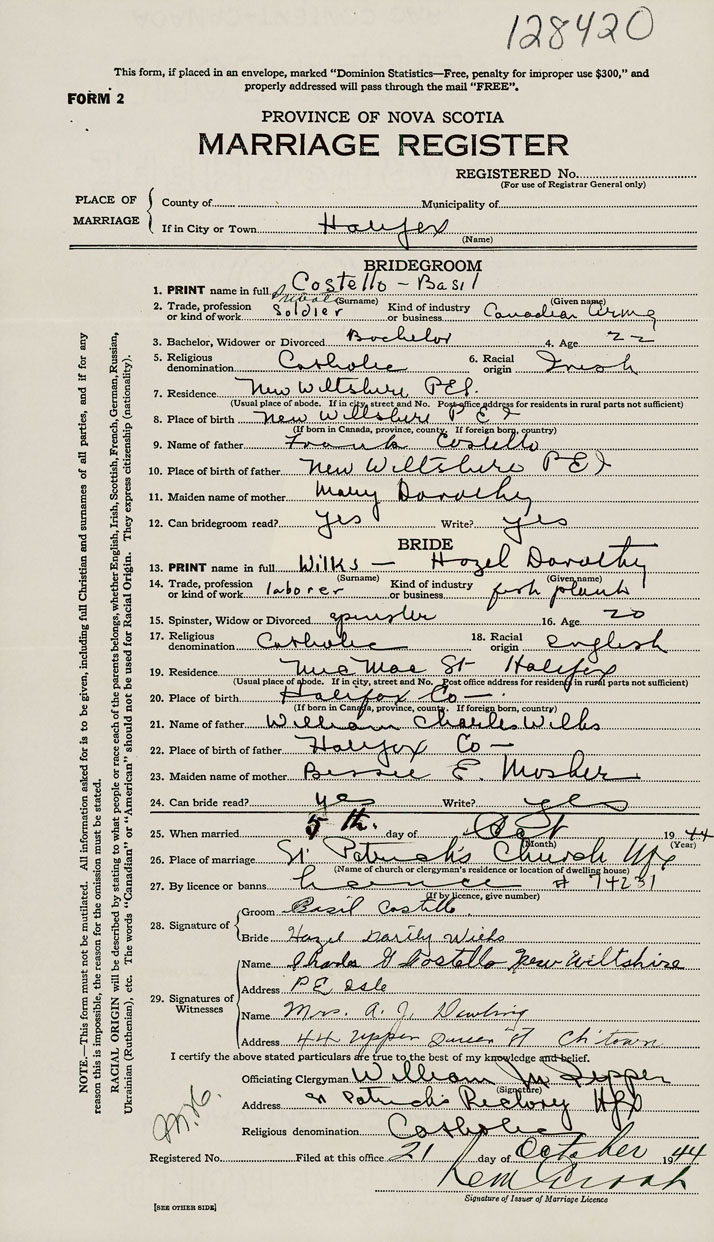 128420
This form, if placed in an envelope, marked "Dominion Statistics—Free, penalty for improper use $300," and
properly addressed will pass through the mail "FREE".
FORM 2
PROVINCE OF NOVA SCOTIA
MARRIAGE REGISTER
REGISTERED No.
(For use of Registrar General only)
PLACE OF MARRIAGE
County of Municipality of
If in City or Town Halifax
(Name)
BRIDEGROOM
1. PRINT name in full Costello - Basil
(Surname) (Given name)
2. Trade, profession or kind of work Private Soldier Kind of industry or business Canadian Army
3. Bachelor, Widower or Divorced Bachelor 4. Age 22
5. Religious denomination Catholic 6. Racial origin Irish
7. Residence New Wiltshire PEI.
(Usual place of abode. If in city, street and No. Post office address for residents in rural parts not sufficient)
8. Place of birth New Wiltshire P E I
(If born in Canada, province, county. If foreign born, country)
9. Name of father Frank Costello
10. Place of birth of father New Wiltshire P E I
11. Maiden name of mother Mary Dorothy
12. Can bridegroom read? yes Write? yes
BRIDE
13. PRINT name in full Wilks — Hazel Dorothy
(Surname) (Given name)
14. Trade, profession or kind of work laborer Kind of industry or business fish plant
15. Spinster, Widow or Divorced spinster 16. Age 20
17. Religious denomination Catholic 18. Racial origin English
19. Residence St Halifax
(Usual place of abode. If in city, street and No. Post office address for residents in rural parts not sufficient)
20. Place of birth Halifax Co —
(If born in Canada, province, county. If foreign born, country)
21. Name of father William Charles Wilks
22. Place of birth of father Halifax Co —
23. Maiden name of mother Bessie E. Mosher
24. Can bride read? yes Write? yes
25. When married 5th. day of Oct 1944
(Month) (Year)
26. Place of marriage St Patrick's Church Hfx
(Name of church or clergyman's residence or location of dwelling house)
27. By licence or banns licence # 74231
(If by licence, give number)
28. Signature of
Groom Basil Costello
Bride Hazel Wilks
29. Signatures of Witnesses
Name Costello New Wiltshire
Address P.E. Isle
Name Mrs. A. J. Dowling
Address 44 Upper Queen St Ch'town
I certify the above stated particulars are true to the best of my knowledge and belief.
Officiating Clergyman William
(Signature)
Address St Patrick's Rectory Hfx
Religious denomination Catholic
Registered No. Filed at this office 21 day of October 1944
Signature of Issuer of Marriage Licence
[SEE OTHER SIDE]
NOTE.—This form must not be mutilated. All information asked for is to be given, including full Christian and surnames of all parties, and if for any
reason this is impossible, the reason for the omission must be stated.
RACIAL ORIGIN will be described by stating to what people or race each of the parents belongs, whether English, Irish, Scottish, French, German, Russian,
Ukrainian (Ruthenian), etc. The words "Canadian" or "American" should not be used for Racial Origin. They express citizenship (nationality).